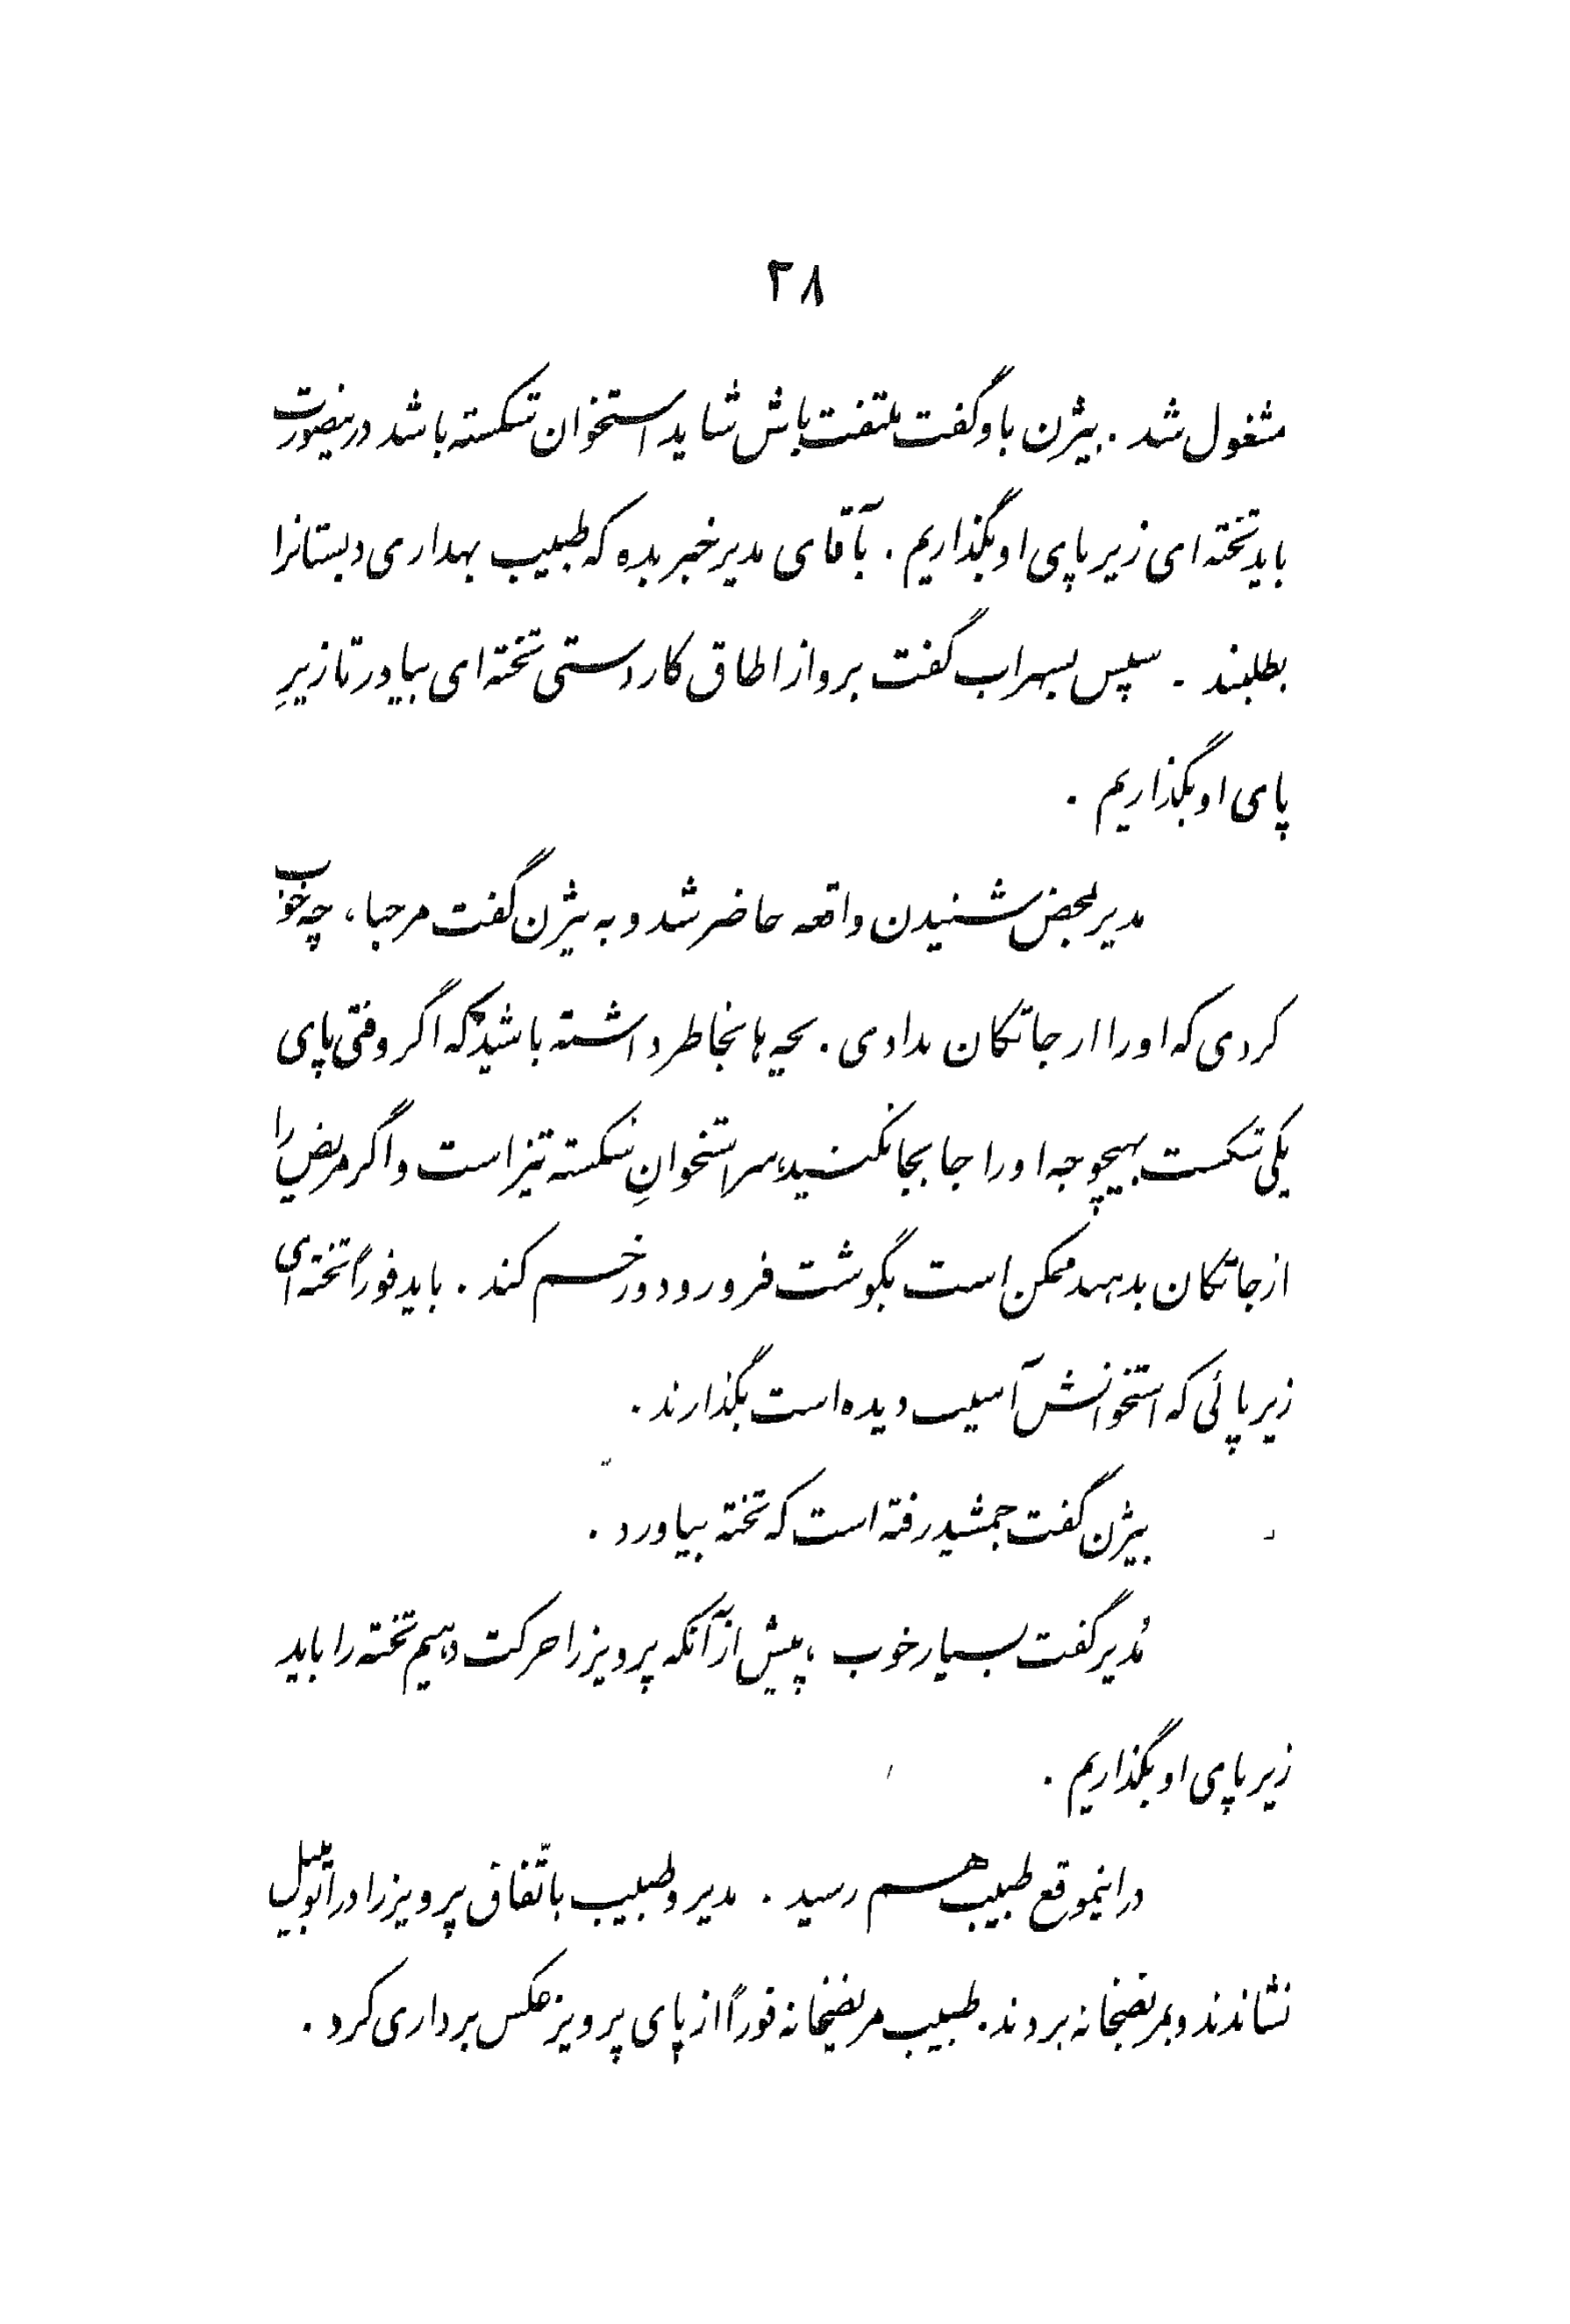 ۲۸
مشغول شد . بیژن باو گفت ملتفت باش شاید استخوان شکسته باشد درینصورت
باید تخته ای زیر پای او بگذاریم . بآقای مدیر خبر بده که طبیب بهداری دبستانرا
بطلبند . سپس بسهراب گفت برو از اطاق کاردستی تخته ای بیاور تا زیرِ
پای او بگذاریم .
مدیر بمحض شنیدن واقعه حاضر شد و به بیژن گفت مرحبا ، چه خوب
کردی که او را از جا تکان ندادی . بچه ها بخاطر داشته باشید که اگر وقتی پای
یکی شکست بهیچوجه او را جابجا نکنید، سر استخوانِ شکسته تیز است و اگر مریض را
از جا تکان بدهید ممکن است بگوشت فرو رود و زخم کند . باید فوراً تخته ای
زیر پائی که استخوانش آسیب دیده است بگذارند .
بیژن گفت جمشید رفته است که تخته بیاورد .
مُدیر گفت بسیار خوب ، پیش از آنکه پرویز را حرکت دهیم تخته را باید
زیر پای او بگذاریم .
در اینموقع طبیب هم رسید . مدیر و طبیب باتّفاق پرویز را در اتومبیل
نشاندند و بمریضخانه بردند . طبیب مریضخانه فوراً از پای پرویز عکس برداری کرد .